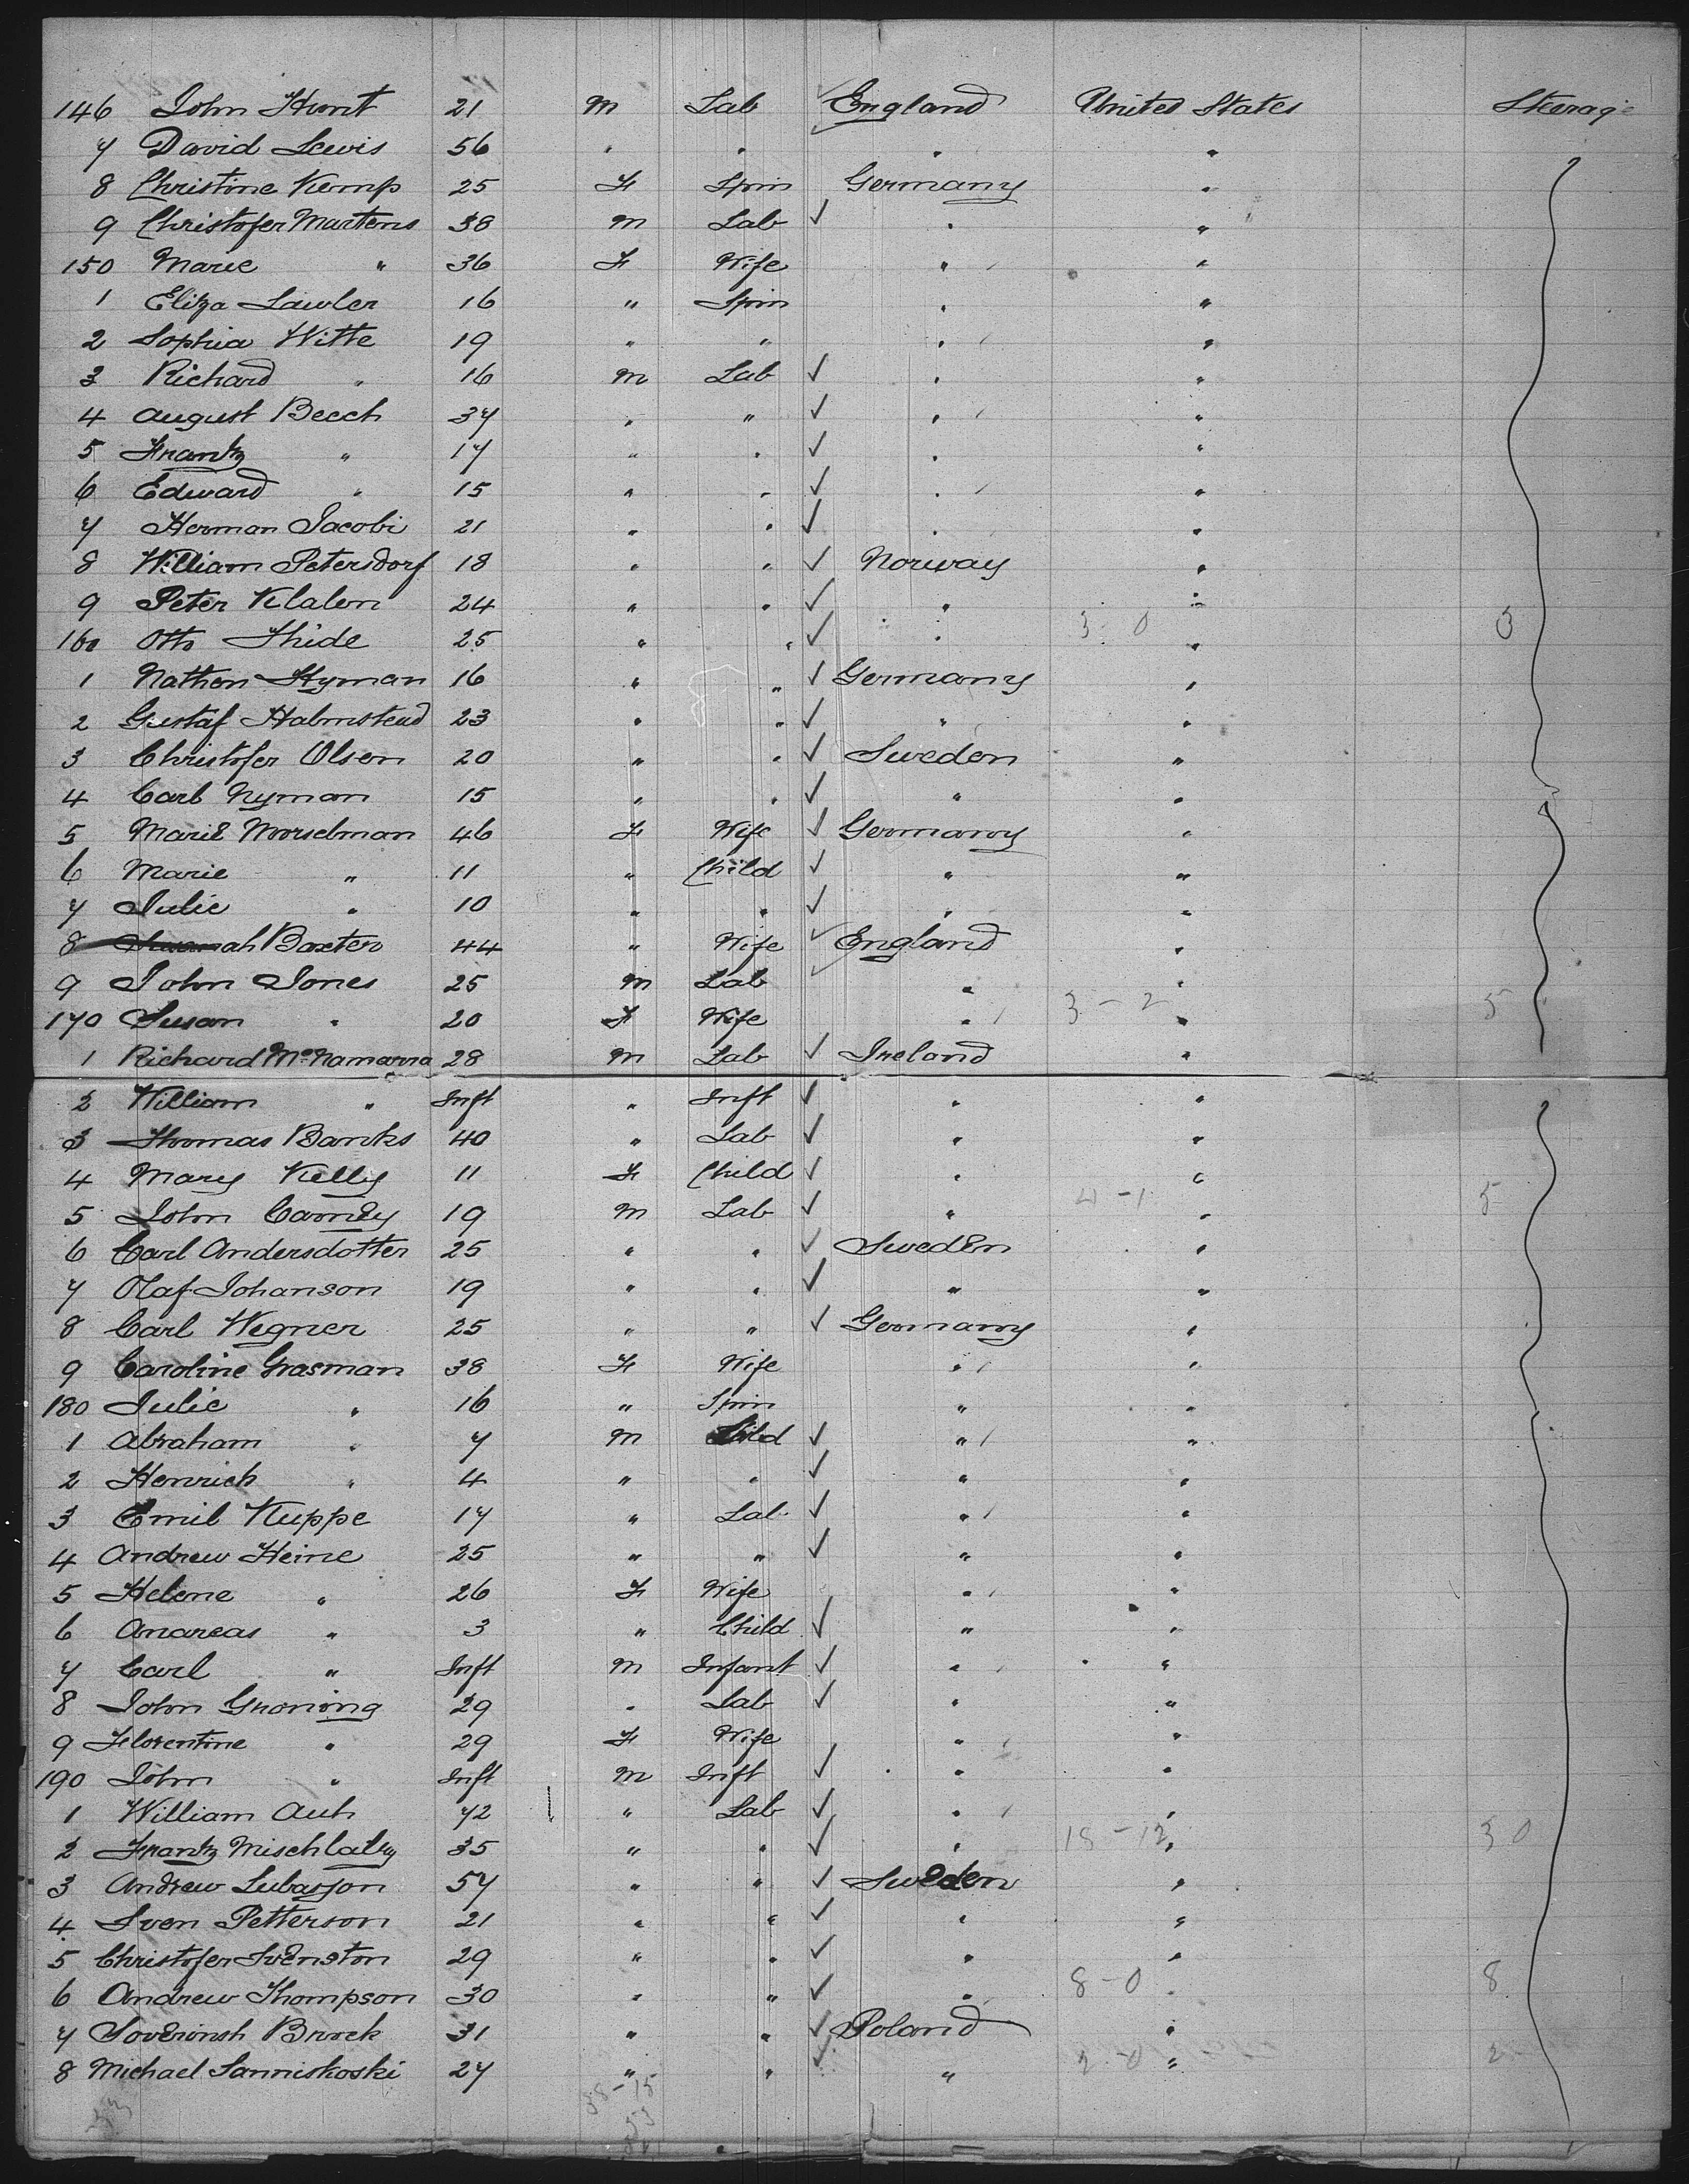 146 John Hunt 21 M Lab England United States Steerage
7 David Lewis 56 " " " "
8 Christine Kemp 25 F Spin Germany "
9 Christofer Martens 38 M Lab ✓ " "
150 Marie " 36 F Wife " "
1 Eliza Lawler 16 " Spin " "
2 Sophia Witte 19 " " " "
3 Richard " 16 M Lab ✓ " "
4 August Beech 37 " " ✓ " "
5 Frantz " 17 " " ✓ " "
6 Edward " 15 " " ✓ " "
7 Herman Jacobi 21 " " ✓ " "
8 William Petersdorf 18 " " ✓ Norway "
9 Peter Klalen 24 " " ✓ " "
160 Otto Thide 25 " " ✓ " 3-0 " 3
1 Nathan Hyman 16 " " ✓ Germany "
2 Gustaf Halmstead 23 " " ✓ " "
3 Christofer Olsen 20 " " ✓ Sweden "
4 Carl Nyman 15 " " ✓ " "
5 Marie Moorselman 46 F Wife ✓ Germany "
6 Marie " 11 " Child ✓ " "
7 Julie " 10 " " ✓ " "
8 Susanah Baxter 44 " Wife ✓ England "
9 John Jones 25 M Lab " "
170 Susan " 20 F Wife " 3-2 " 5
1 Richard McNamarra 28 M Lab ✓ Ireland "
2 William " Inft " Inft ✓ " "
3 Thomas Banks 40 " Lab ✓ " "
4 Mary Kelly 11 F Child ✓ " "
5 John Carney 19 M Lab ✓ " 4-1 " 5
6 Carl Andersdotter 25 " " ✓ Sweden "
7 Olaf Johanson 19 " " ✓ " "
8 Carl Wegner 25 " " ✓ Germany "
9 Caroline Grasman 38 F Wife " "
180 Julie " 16 " Spin " "
1 Abraham " 7 M Child ✓ " "
2 Henrich " 4 " " ✓ " "
3 Emil Kuppe 17 " Lab ✓ " "
4 Andrew Heine 25 " " ✓ " "
5 Helene " 26 F Wife " "
6 Andreas " 3 " Child ✓ " "
7 Carl " Inft M Infant ✓ " "
8 John Groning 29 " Lab ✓ " "
9 Florentine " 29 F Wife " "
190 John " Inft M Inft ✓ " "
1 William Auh 72 " Lab ✓ " "
2 Frantz 35 " " ✓ " 18-12 " 30
3 Andrew 57 " " ✓ Sweden "
4 Sven Petterson 21 " " ✓ " "
5 Christofer Svenston 29 " " ✓ " "
6 Andrew Thompson 30 " " ✓ " 8-0 " 8
7 Brock 31 " " ✓ Poland "
8 Michael Sanniskoski 27 " " ✓ " 2-0 " 2
38-15
53